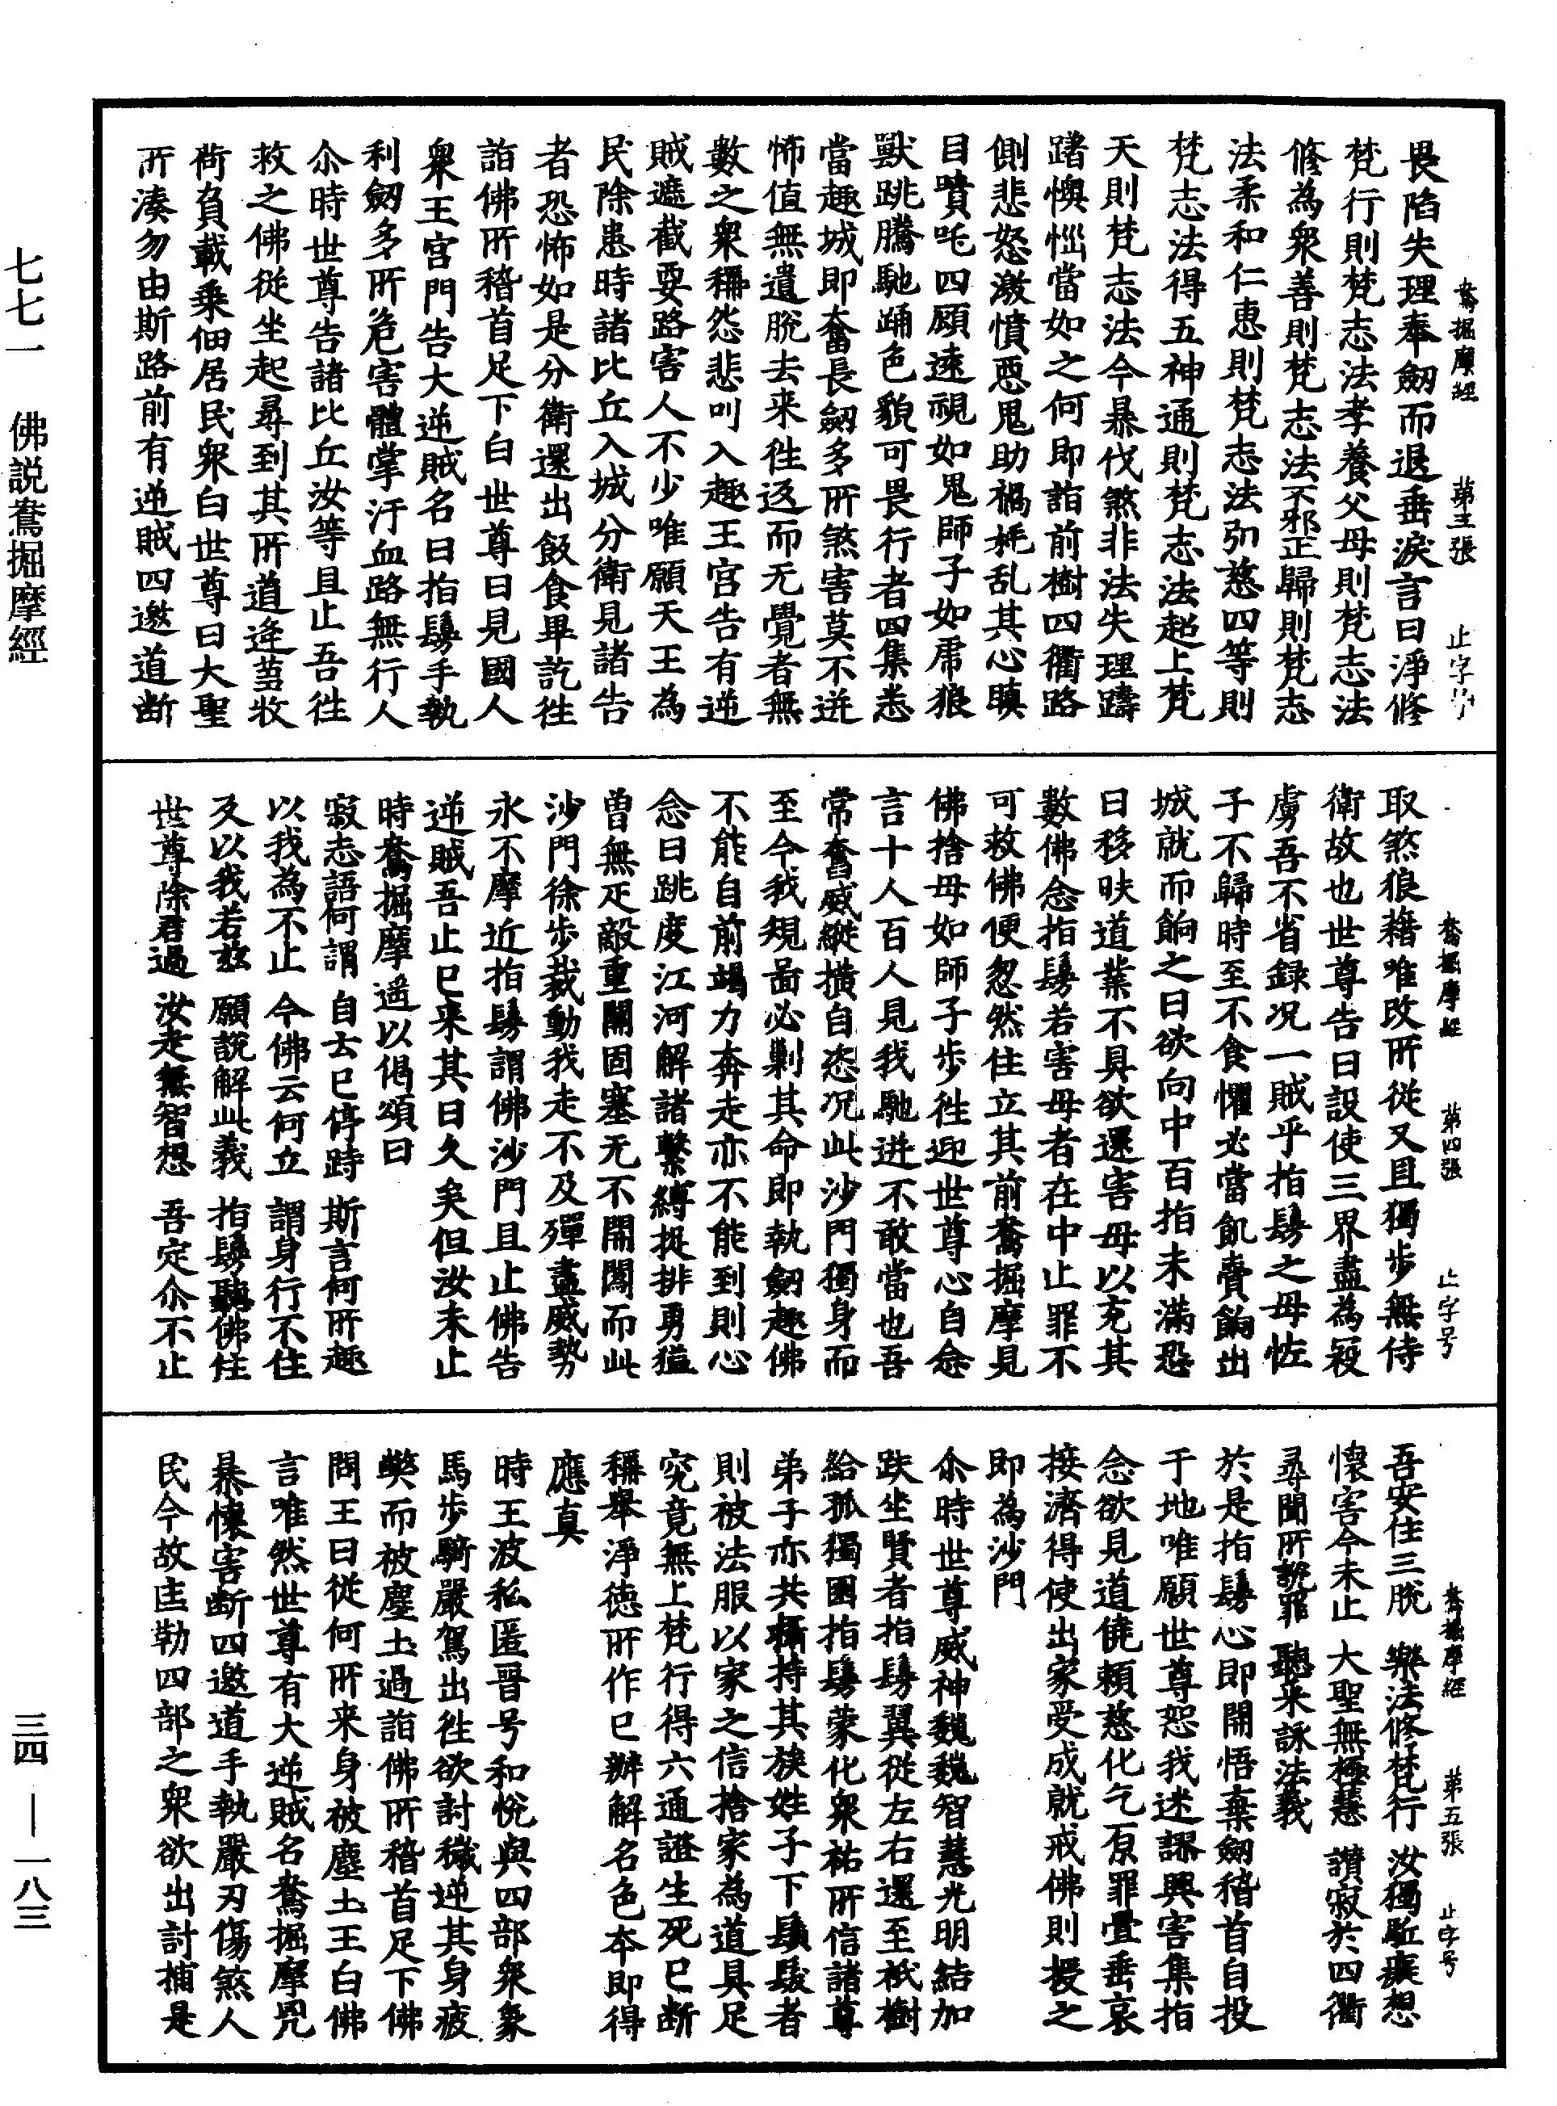 鴦掘摩經 第三張 止字号
畏陷失理奉劒而退垂淚言曰淨修
梵行則梵志法孝養父母則梵志法
修為衆善則梵志法不邪正歸則梵志
法柔和仁恵則梵志法弘慈四等則
梵志法得五神通則梵志法超上梵
天則梵志法今暴伐煞非法失理躊
躇懊惱當如之何即詣前樹四衢路
側悲怒激憤惡鬼助禍耗乱其心瞋
目嘖吒四顧遠視如鬼師子如虎狼
獸跳騰馳踊色貌可畏行者四集悉
當趣城即奮長劒多所煞害莫不迸
怖值無遺脫去来往返而无覺者無
數之衆稱怨悲叫入趣王宮告有逆
賊遮截要路害人不少唯願天王為
民除患時諸比丘入城分衛見諸告
者恐怖如是分衛還出飯食畢訖往
詣佛所稽首足下白世尊曰見國人
衆王宮門告大逆賊名曰指鬘手執
利劒多所危害體掌汙血路無行人
尒時世尊告諸比丘汝等且止吾往
救之佛從坐起尋到其所道逢芻牧
荷負載乗佃居民衆白世尊曰大聖
所湊勿由斯路前有逆賊四邀道断
鴦掘摩經 第四張 止字号
取煞狼藉唯改所從又且獨步無侍
衛故也世尊告曰設使三界盡為寇
虜吾不省録况一賊乎指鬘之母恠
子不歸時至不食懼必當飢賷餉出
城就而餉之日欲向中百指未滿恐
日移昳道業不具欲還害母以充其
數佛念指鬘若害母者在中止罪不
可救佛便忽然住立其前鴦掘摩見
佛捨母如師子步往迎世尊心自念
言十人百人見我馳迸不敢當也吾
常奮威縱橫自恣况此沙門獨身而
至今我規啚必剿其命即執劒趣佛
不能自前竭力奔走亦不能到則心
念曰跳度江河解諸繫縛投排勇猛
曽無疋敵重關固塞无不開闢而此
沙門徐步裁動我走不及殫盡威勢
永不摩近指鬘謂佛沙門且止佛告
逆賊吾止已来其日久矣但汝未止
時鴦掘摩遥以偈頌曰
寂志語何謂 自去已停跱 斯言何所趣
以我為不止 今佛云何立 謂身行不住
及以我若玆 願說解此義 指鬘聽佛住
世尊除君過 汝走無智想 吾定尒不止
鴦掘摩經 第五張 止字号
吾安住三脫 樂法修梵行 汝獨駈癡想
懷害今未止 大聖無極慧 讃寂於四衢
尋聞所說罪 聽来詠法義
於是指鬘心即開悟棄劒稽首自投
于地唯願世尊恕我迷謬興害集指
念欲見道僥頼慈化乞原罪舋垂哀
接濟得使出家受成就戒佛則授之
即為沙門
尒時世尊威神巍巍智慧光明結加
趺坐賢者指鬘翼從左右還至祇樹
給孤獨園指鬘蒙化衆祐所信諸尊
弟子亦共攝持其族姓子下鬚髮者
則被法服以家之信捨家為道具足
究竟無上梵行得六通證生死已断
稱舉淨德所作已辦解名色本即得
應真
時王波私匿晉号和悅與四部衆象
馬步騎嚴駕出往欲討穢逆其身疲
弊而被塵土過詣佛所稽首足下佛
問王曰從何所来身被塵土王白佛
言唯然世尊有大逆賊名鴦掘摩兇
暴懷害断四邀道手執嚴刃傷煞人
民今故匡勒四部之衆欲出討捕是
七七一 佛説鴦掘摩經
三四 — 一八三